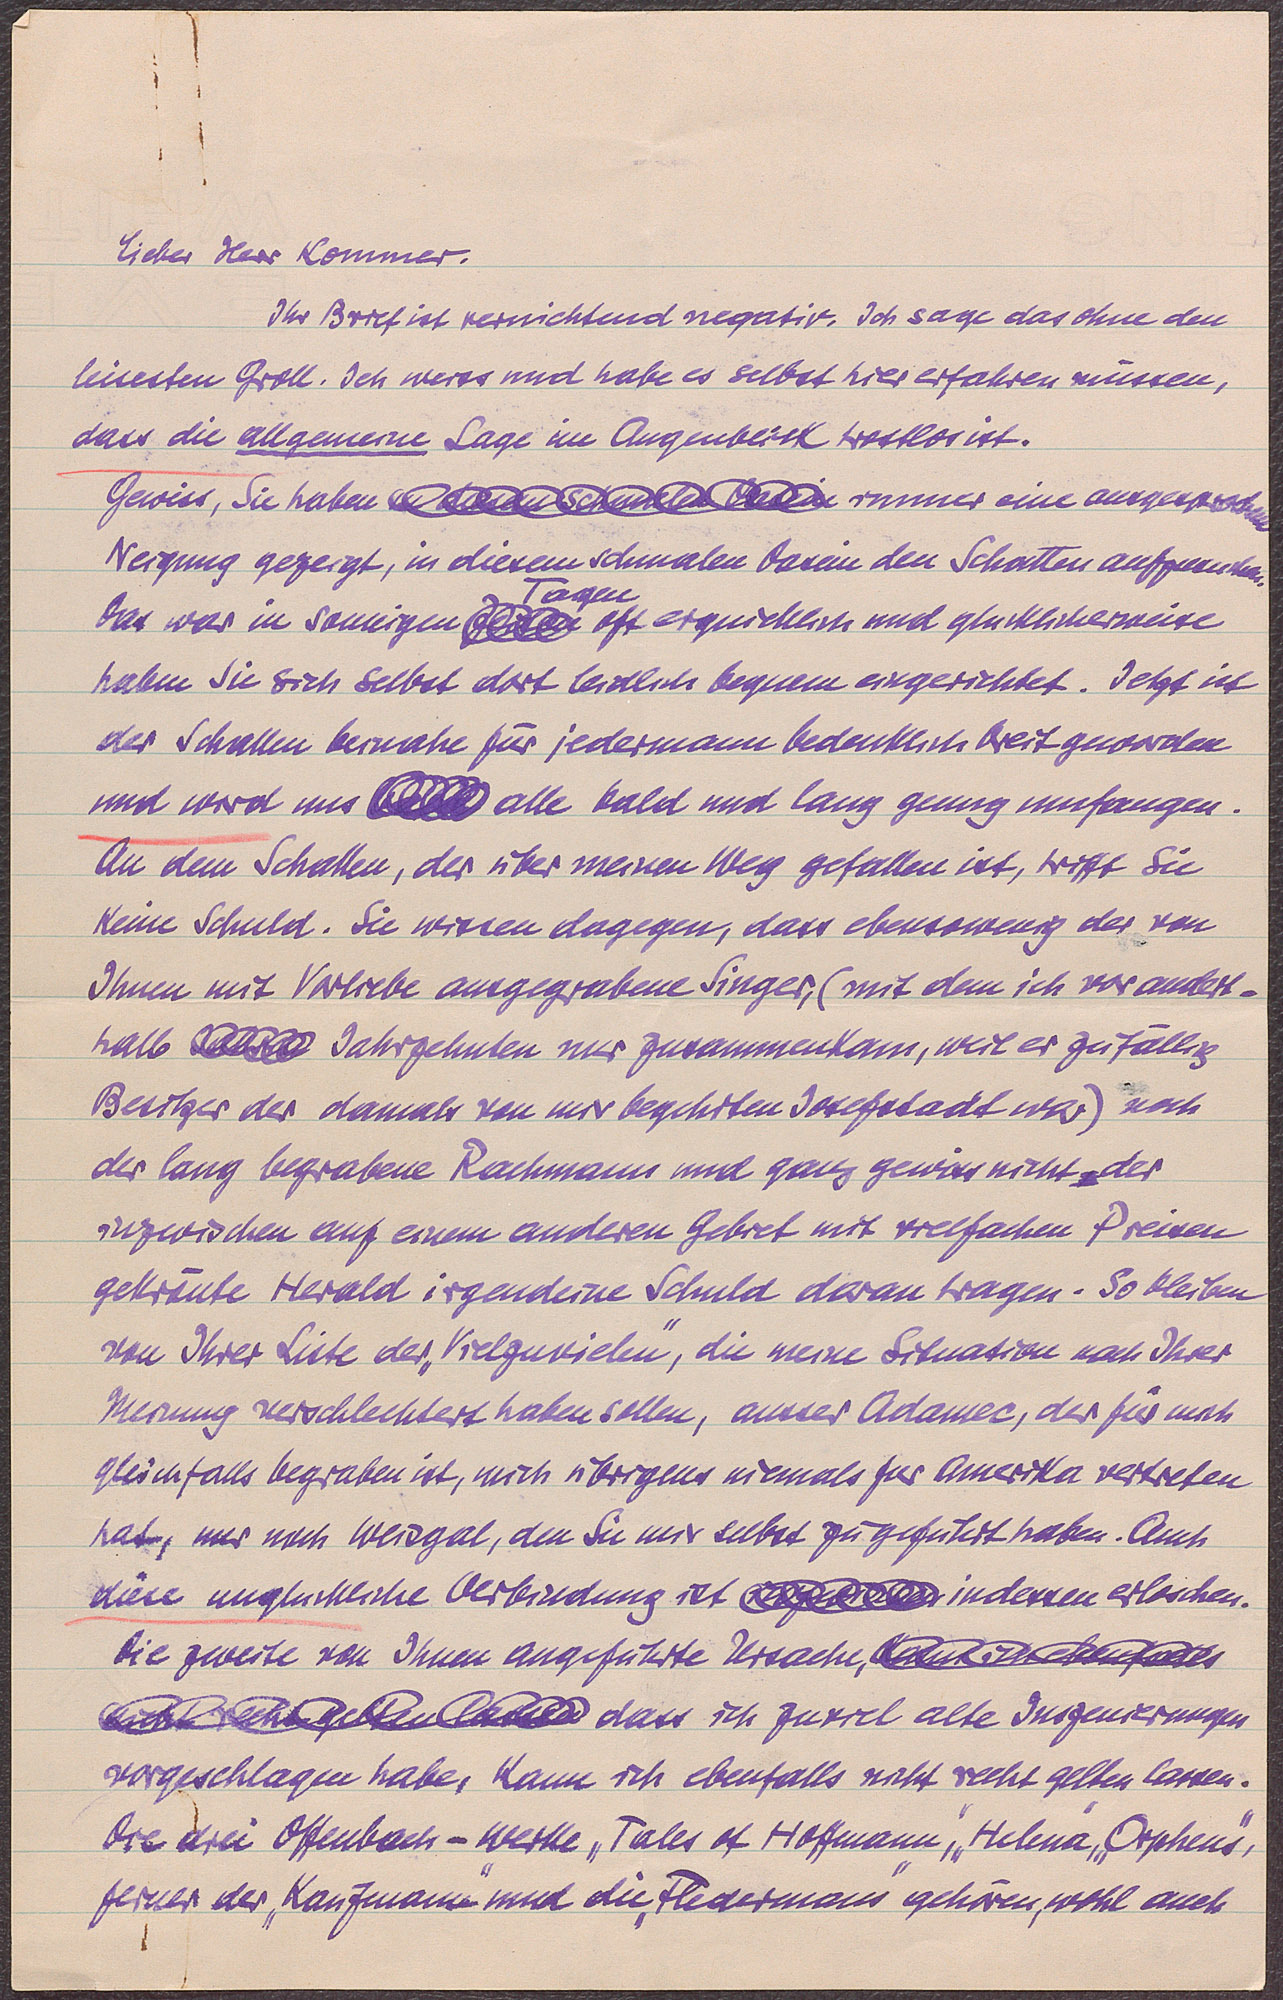 Lieber Herr Kommer.
Ihr Brief ist vernichtend negativ. Ich sage das ohne den
leisesten Groll. Ich weiss und habe es selbst hier erfahren müssen,
dass die allgemeine Lage im Augenblick trostlos ist.
Gewiss, Sie haben in diesem schmalen Dasein immer eine ausgesprochene
Neigung gezeigt, in diesem schmalen Dasein den Schatten aufzusuchen.
Tagen
Das war in sonnigen oft erquicklich und glücklicherweise
haben Sie sich selbst dort leidlich bequem eingerichtet. Jetzt ist
der Schatten beinahe für jedermann bedenklich breit geworden
und wird uns alle bald und lang genug umfangen.
An dem Schatten, der über meinen Weg gefallen ist, trifft Sie
keine Schuld. Sie wissen dagegen, dass ebensowenig der von
Ihnen mit Vorliebe ausgegrabene Singer, (mit dem ich vor andert-
halb Jahrzehnten nur zusammenkam, weil er zufällig
Besitzer der damals von mir begehrten Josefstadt war) noch
der lang begrabene Rachmann und ganz gewiss nicht der
inzwischen auf einem anderen Gebiet mit vielfachen Preisen
gekrönte Herald irgendeine Schuld daran tragen. So bleiben
von Ihrer Liste der „Vielzuvielen", die meine Situation nach Ihrer
Meinung verschlechtert haben sollen, ausser Adamec, der für mich
gleichfalls begraben ist, mich übrigens niemals für Amerika vertreten
hat, nur noch Weisgal, den Sie mir selbst zugeführt haben. Auch
diese unglückliche Verbindung ist indessen erloschen.
Die zweite von Ihnen angeführte Ursache, kann ich ebenfalls
nicht recht gelten lassen dass ich zuviel alte Inszenierungen
vorgeschlagen habe, kann ich ebenfalls nicht recht gelten lassen.
Die drei Offenbach-Werke „Tales of Hoffmann", „Helena", „Orpheus",
ferner der „Kaufmann" und die „Fledermaus" gehören, wohl auch